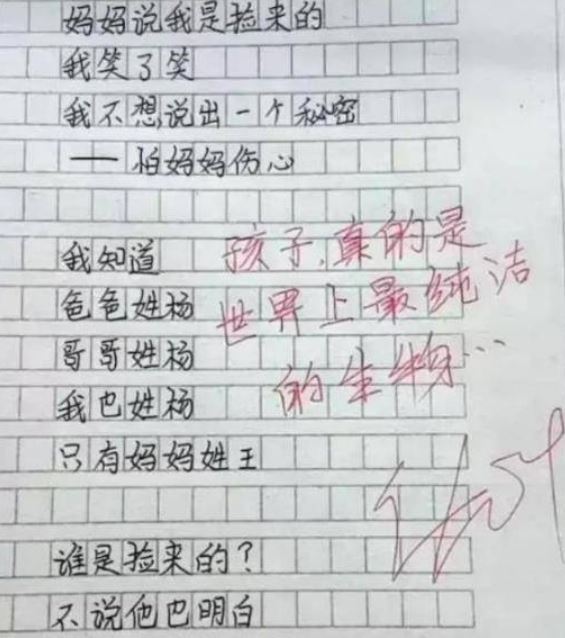 妈妈说我是捡来的
我笑了笑
我不想说出一个秘密
——怕妈妈伤心
我知道
爸爸姓杨
哥哥姓杨
我也姓杨
只有妈妈姓王
谁是捡来的？
不说他也明白
孩子,真的是
世界上最纯洁
的生物…